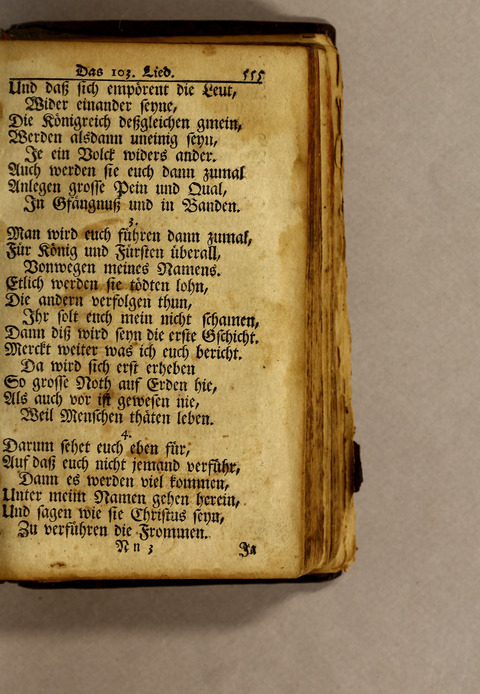 Das 103. Lied. 555
Und daß sich empörent die Leut,
Wider einander seyne,
Die Königreich deßgleichen gmein,
Werden alsdann uneinig seyn,
Je ein Volck widers ander.
Auch werden sie euch dann zumal
Anlegen grosse Pein und Qual,
In Gfängnuß und in Banden.
3.
Man wird euch führen dann zumal,
Für König und Fürsten überall,
Vonwegen meines Namens.
Etlich werden sie tödten lohn,
Die andern verfolgen thun,
Ihr solt euch mein nicht schamen,
Dann diß wird seyn die erste Gschicht.
Merckt weiter was ich euch bericht.
Da wird sich erst erheben
So grosse Noth auf Erden hie,
Als auch vor ist gewesen nie,
Weil Menschen thäten leben.
4.
Darum sehet euch eben für,
Auf daß euch nicht jemand verführ,
Dann es werden viel kommen,
Unter meim Namen gehen herein,
Und sagen wie sie Christus seyn,
Zu verführen die Frommen.
N n 3 Ja